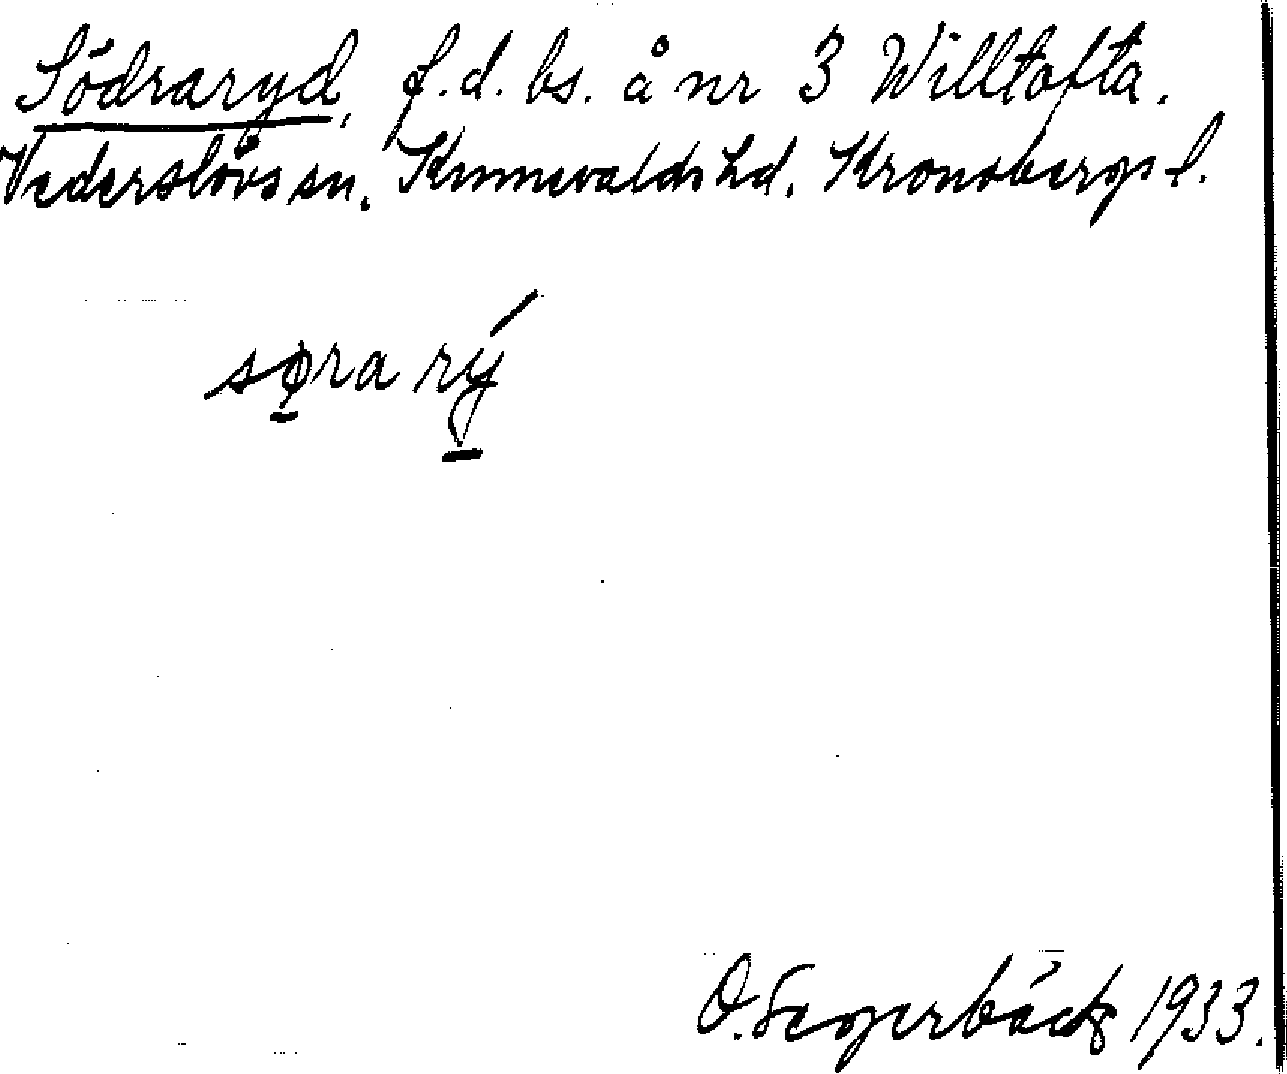 Södraryd, f.d. bs. å nr 3 Willtofta.
Vederslövs sn. Kinnevalds hd. Kronobergs l.
søra rý
O. Segerbäck 1933.